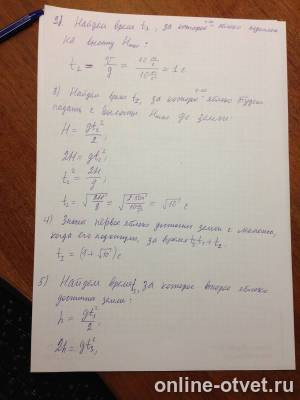 2) Найдем время t₁, за которое 1-ое яблоко поднимется
на высоту Hmax:
t₁ = v/g = 10 м/с / 10 м/с² = 1 с
3) Найдем время t₂, за которое 1-ое яблоко будет
падать с высоты Hmax до земли:
H = gt₂²/2;
2H = gt₂²;
t₂² = 2H/g;
t₂ = √(2H/g) = √(2·50м/10м/с²) = √10 с
4) Значит первое яблоко достигнет земли с момента,
когда его подкинули, за время t₁+t₂.
t = (1+√10) с
5) Найдем время t₃, за которое второе яблоко
достигнет земли:
h = gt₃²/2;
2h = gt₃²;
online-otvet.ru